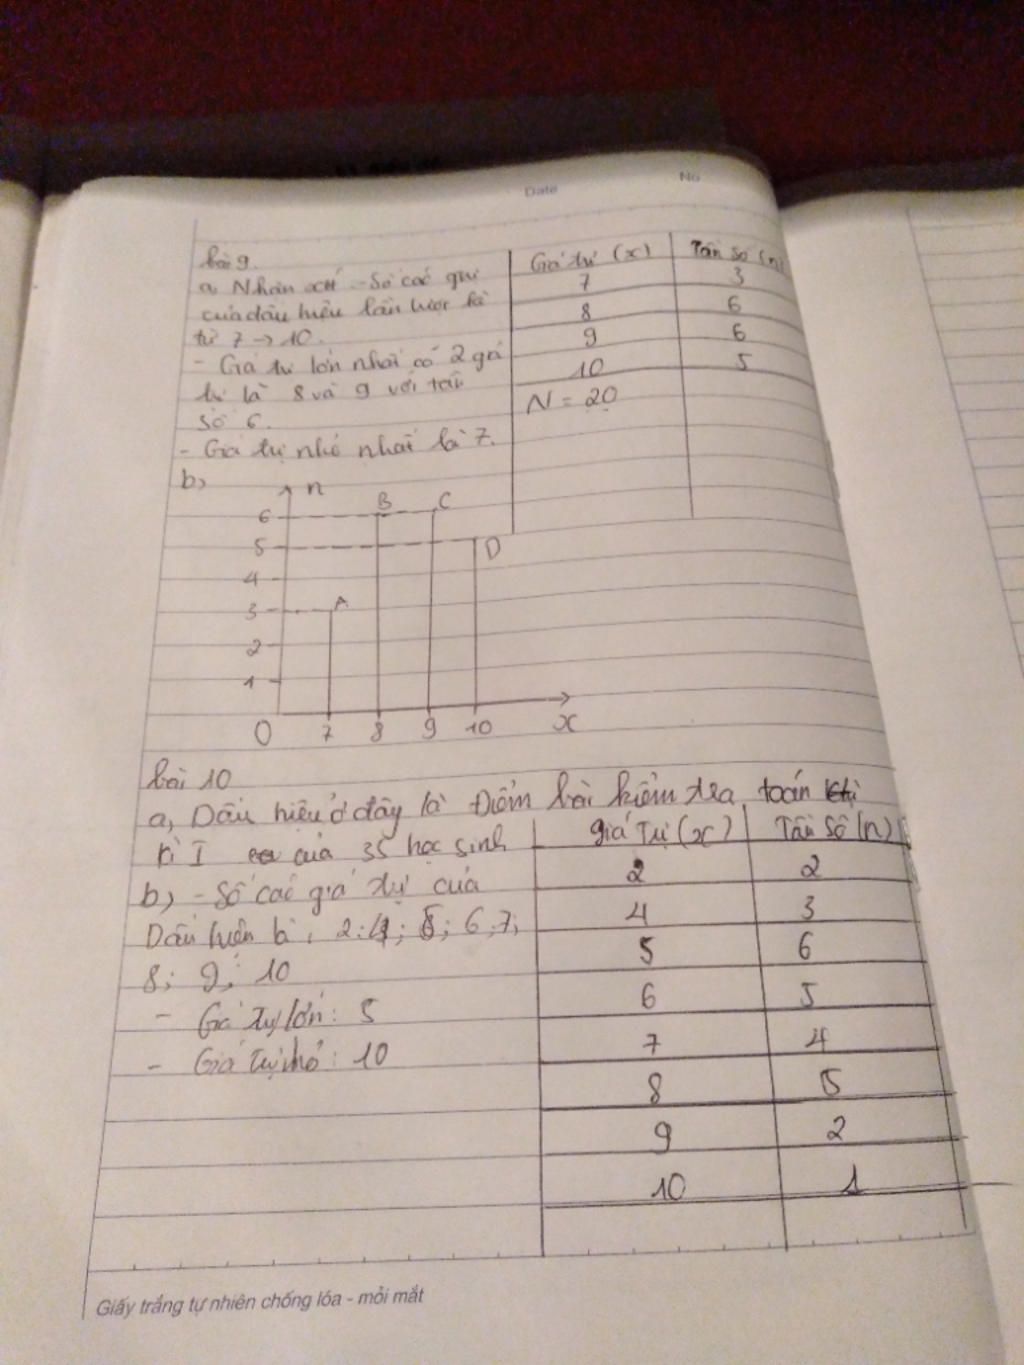 Date
No
bài 9.
a, Nhận xét - Số các giá
của dấu hiệu lần lượt là
từ 7 → 10.
- Giá trị lớn nhất có 2 giá
trị là 8 và 9 với tần
số 6.
- Giá trị nhỏ nhất là 7.
Giá trị (x) Tần số (n)
7 3
8 6
9 6
10 5
N = 20
b,
n
6 B C
5 D
4
3 A
2
1
O 7 8 9 10 x
bài 10
a, Dấu hiệu ở đây là Điểm bài kiểm tra toán
kì I của 35 học sinh
b, - Số các giá trị của
Dấu hiệu là: 2; 4; 5; 6; 7;
8; 9; 10
- Giá trị lớn: 5
- Giá trị nhỏ: 10
giá Trị (x) Tần Số (n)
2 2
4 3
5 6
6 5
7 4
8 5
9 2
10 1
Giấy trắng tự nhiên chống lóa - mỏi mắt